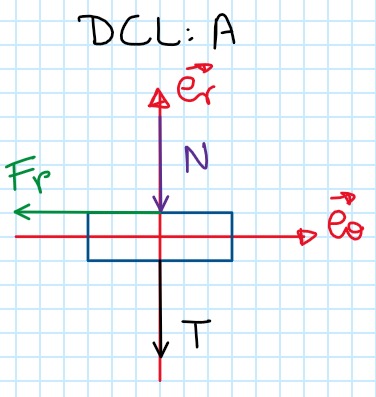 DCL: A
e⃗r
N
Fr
e⃗θ
T